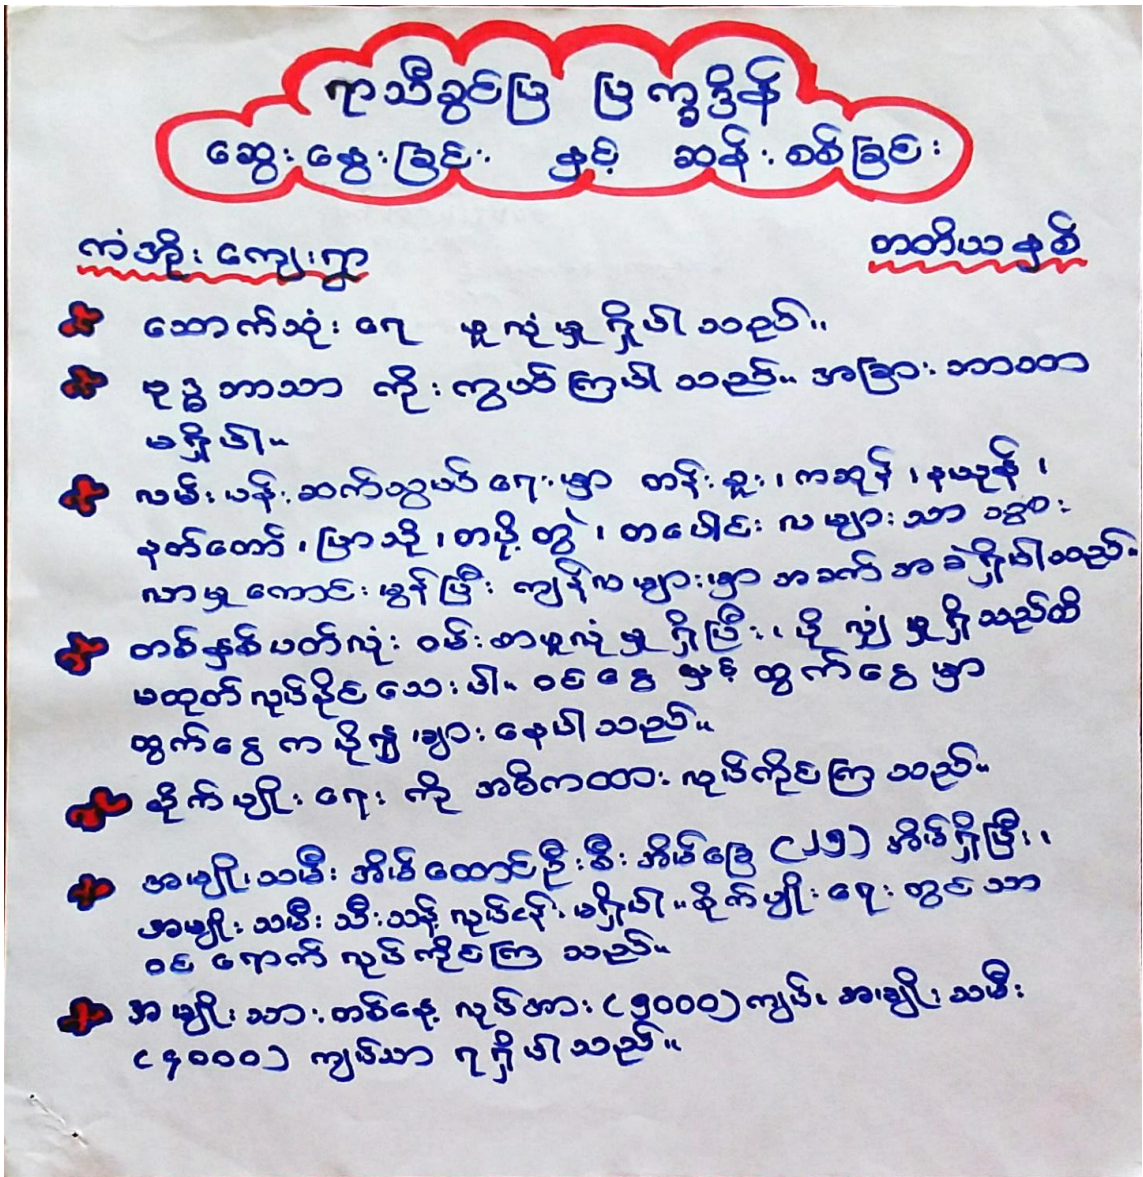 ရာသီခွင်ပြ ပြက္ခဒိန်
ဆွေးနွေးခြင်း နှင့် ဆန်းစစ်ခြင်း
ကံအိုးကျေးရွာ
တတိယနှစ်
သောက်သုံးရေ ဖူလုံမှု ရှိပါသည်။
ဗုဒ္ဓဘာသာ ကိုးကွယ်ကြပါသည်။ အခြားဘာသာ
မရှိပါ။
လမ်းပန်းဆက်သွယ်ရေးမှာ တန်ခူး၊ ကဆုန်၊ နယုန်၊
နတ်တော်၊ ပြာသို၊ တပို့တွဲ၊ တပေါင်း လများသာ သွား
လာမှုကောင်းမွန်ပြီး ကျန်လများမှာ အခက်အခဲရှိပါသည်။
တစ်နှစ်ပတ်လုံး ဝမ်းစာဖူလုံမှု ရှိပြီး၊ ပိုလျှံမှုရှိသည်ထိ
မထုတ်လုပ်နိုင်သေးပါ။ ဝင်ငွေ နှင့် ထွက်ငွေမှာ
ထွက်ငွေက ပို၍များနေပါသည်။
စိုက်ပျိုးရေး ကို အဓိကထား လုပ်ကိုင်ကြသည်။
အမျိုးသမီး အိမ်ထောင်ဦးစီး အိမ်ခြေ (၂၅) အိမ်ရှိပြီး၊
အမျိုးသမီး သီးသန့် လုပ်ငန်း မရှိပါ။ စိုက်ပျိုးရေးတွင်သာ
ဝင်ရောက်လုပ်ကိုင်ကြသည်။
အမျိုးသားတစ်နေ့ လုပ်အား (၅၀၀၀) ကျပ်၊ အမျိုးသမီး
(၄၀၀၀) ကျပ်သာ ရရှိပါသည်။